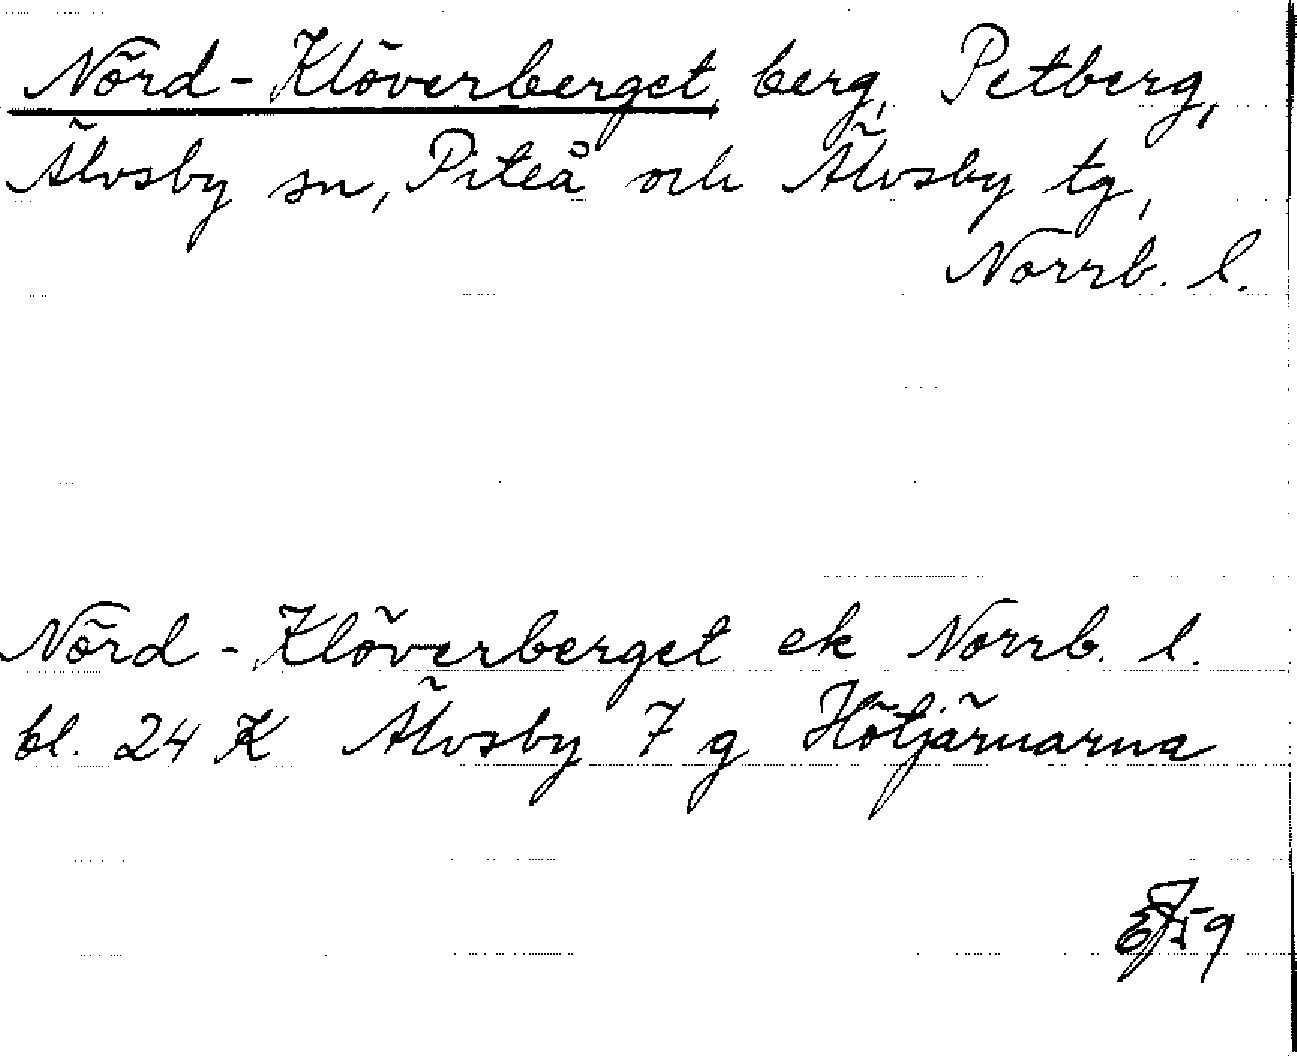 Nörd-Klöverberget, berg, Petberg,
Älvsby sn, Piteå och Älvsby tg,
Norrb. l.
Nörd-Klöverberget ek Norrb. l.
bl. 24 K Älvsby 7 g Hötjärnarna